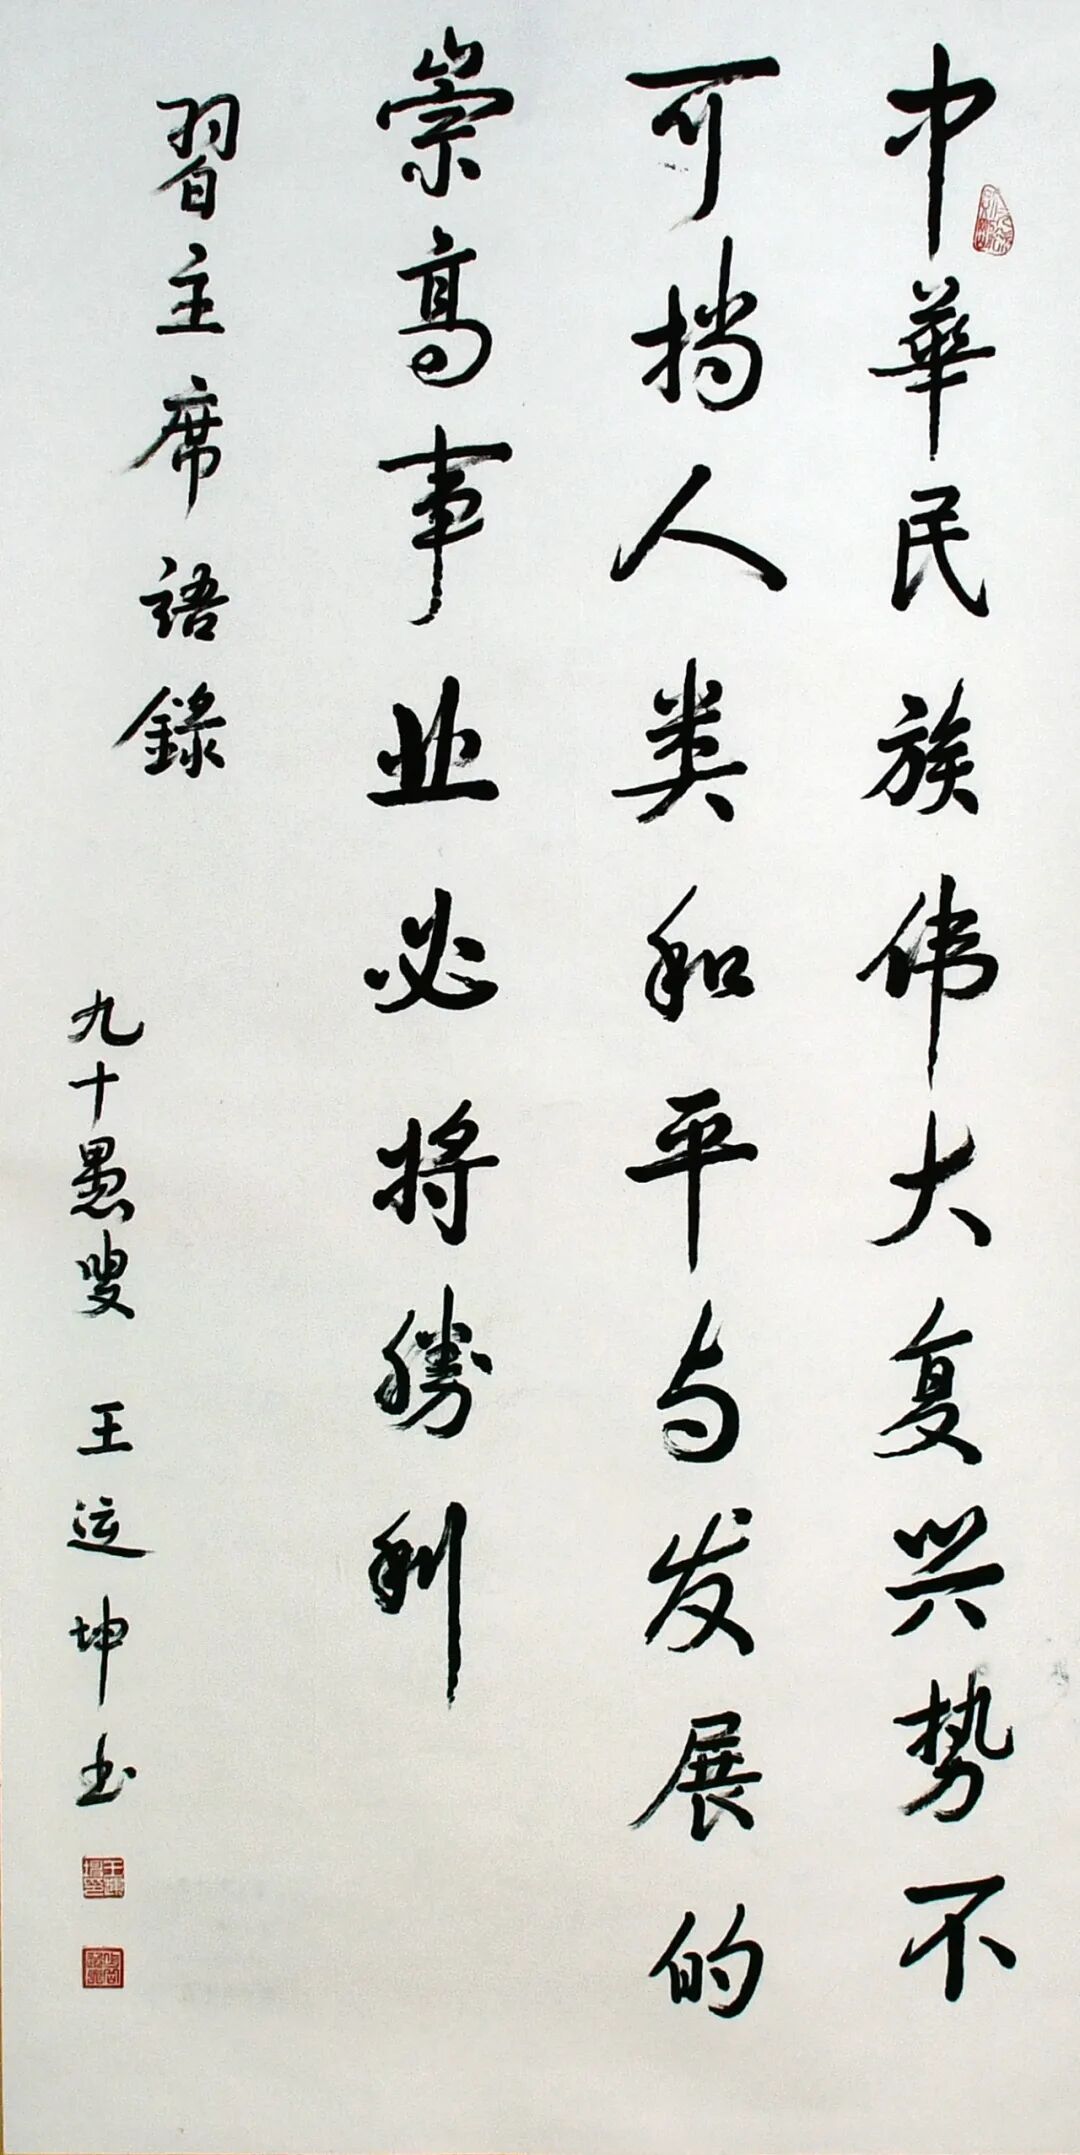 中華民族伟大复兴势不
可挡人类和平与发展的
崇高事业必将勝利
習主席語錄
九十愚叟 王运坤书